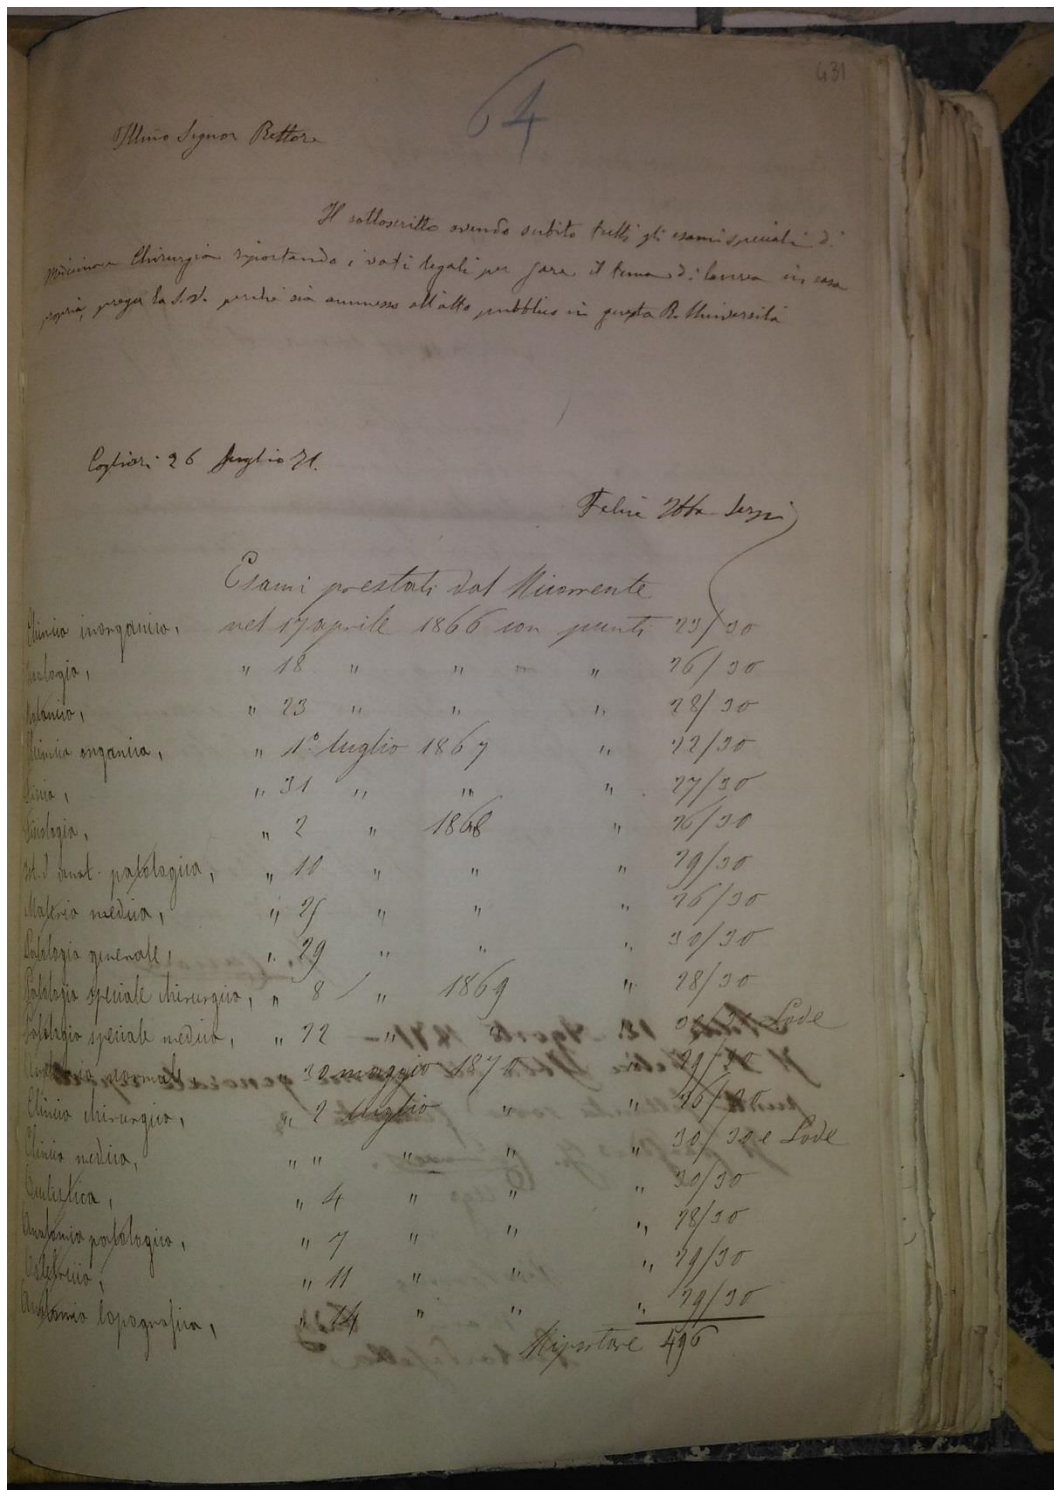 431
64
Illmo Signor Rettore
Il sottoscritto avendo subito tutti gli esami speciali di
Medicina e Chirurgia riportando i voti legali per fare il tema di laurea in casa
propria, prega la S.V. perchè sia ammesso all'atto pubblico in questa R. Università
Cagliari 26 luglio 71.
Felice
Esami prestati dal Ricorrente
Chimica inorganica, nel 17 aprile 1866 con punti 23/30
" 18 " " " " 26/30
Botanica, " 23 " " " 28/30
Chimica organica, " 1° luglio 1867 " 22/30
" 31 " " " 27/30
Fisiologia, " 2 " 1868 " 26/30
Ist. d'anat. patologica, " 10 " " " 29/30
Materia medica, " 25 " " " 26/30
Patologia generale, " 29 " " " 30/30
Patologia speciale chirurgica, " 8 " 1869 " 28/30
Patologia speciale medica, " 22 " " " Lode
Anatomia normale 30 maggio 1870 29/30
Clinica chirurgica, " 2 luglio " " 26/30
Clinica medica, " " " " " 30/30 e Lode
Oculistica, " 4 " " " 30/30
Anatomia patologica, " 7 " " " 28/30
Ostetricia, " 11 " " " 29/30
Anatomia topografica, " 14 " " " 29/30
Riportare 496